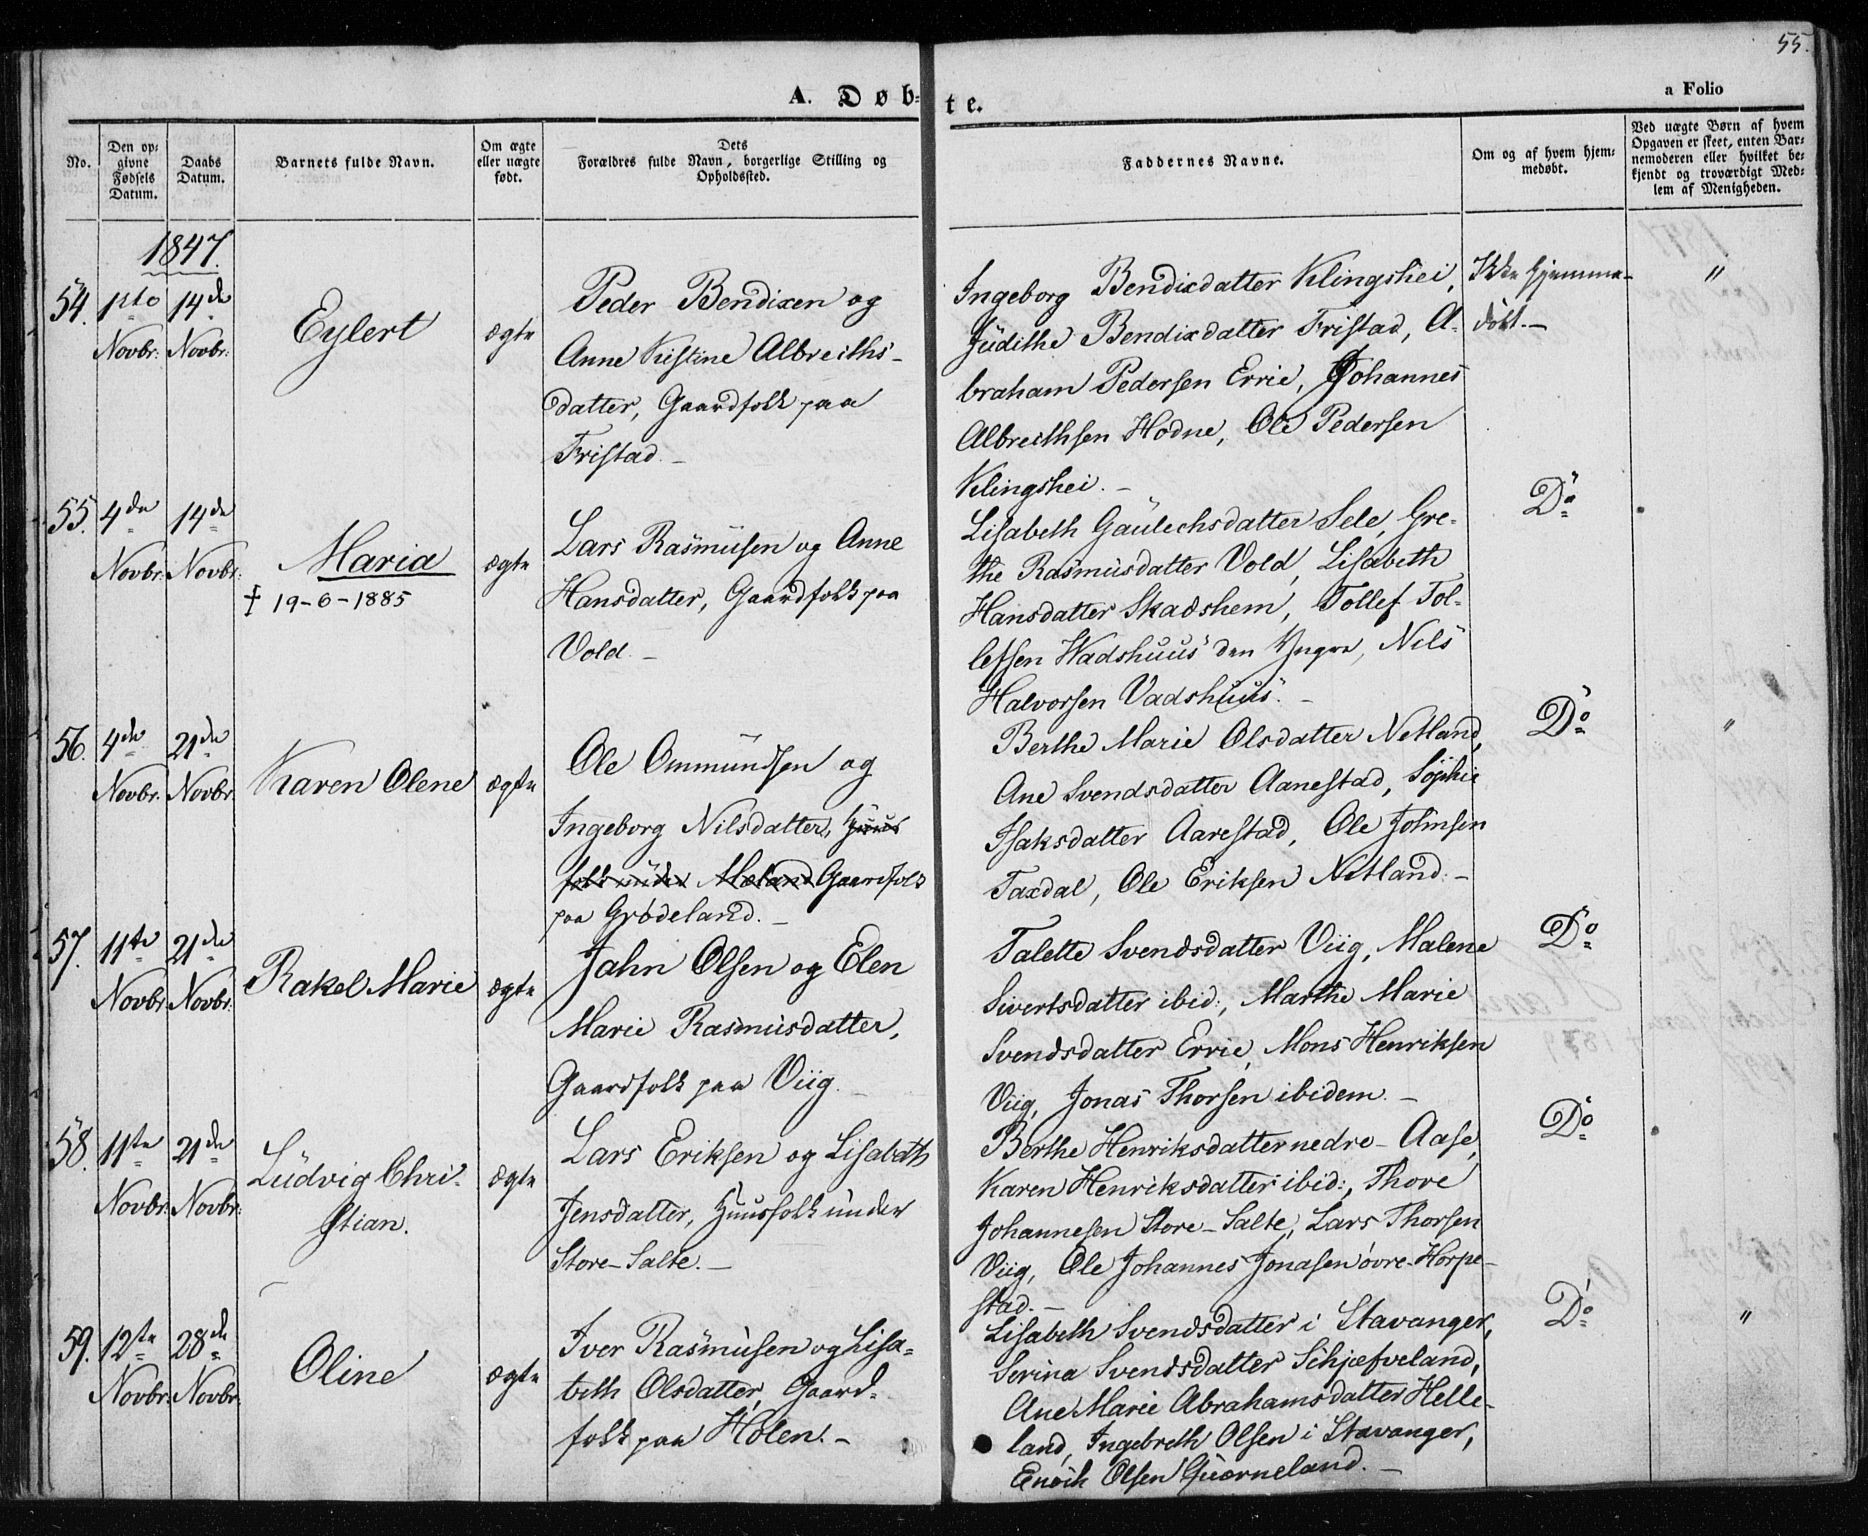 55.
A. Døb-
te.
a Folio
No.
Den op-
givne
Fødsels
Datum.
Daabs
Datum.
Barnets fulde Navn.
Om ægte
eller uægte
født.
Dets
Forældres fulde Navn, borgerlige Stilling og
Opholdssted.
Faddernes Navne.
Om og af hvem hjem-
medøbt.
Ved uægte Børn af hvem
Opgaven er skeet, enten Bar-
nemoderen eller hvilket be-
kjendt og troværdigt Med-
lem af Menigheden.
1847.
54.
1ste
Novbr:
14de
Novbr:
Eylert
ægte
Peder Bendixen og
Anne Kistine Albreiths-
datter, Gaardfolk paa
Fristad. -
Ingeborg Bendixdatter Klingshei,
Judithe Bendixdatter Fristad, A-
braham Pedersen Errie, Johannes
Albreithsen Hodne, Ole Pedersen
Klingshei. -
Ikke hjemme-
döbt. -
"
55.
4de
Novbr.
14de
Novbr:
Maria
† 19-6-1885
ægte
Lars Rasmusen og Anne
Hansdatter, Gaardfolk paa
Vold. -
Lisabeth Gaulechsdatter Sele, Gre-
the Rasmusdatter Vold, Lisabeth
Hansdatter Skadshem, Tollef Tol-
lefsen Wadshuus den Yngre, Nils
Halvorsen Vadshuus. -
Do
56.
4de
Novbr.
21de
Novbr.
Karen Olene
ægte
Ole Ommundsen og
Ingeborg Nilsdatter, Huus
folk under Mæland Gaardfolk
paa Grødeland. -
Berthe Marie Olsdatter Netland,
Ane Svendsdatter Aanestad, Sophie
Isaksdatter Aarestad, Ole Johnsen
Taxdal, Ole Eriksen Netland. -
Do
"
57.
11te
Novbr.
21de
Novbr.
Rakel Marie
ægte
Jahn Olsen og Elen
Marie Rasmusdatter,
Gaardfolk paa Viig.
Talette Svendsdatter Viig, Malene
Sivertsdatter ibid:, Marthe Marie
Svendsdatter Errie, Mons Henriksen
Viig, Jonas Thorsen ibidem. -
Do
58.
11te
Novbr:
21de
Novbr:
Ludvig Chri-
stian.
ægte
Lars Eriksen og Lisabeth
Jensdatter, Huusfolk under
Store-Salte. -
Berthe Henriksdatter nedre-Aase,
Karen Henriksdatter ibid:, Thore
Johannesen Store-Salte, Lars Thorsen
Viig, Ole Johannes Jonasen övre-Horpe-
stad. -
Do
59.
12te
Novbr:
28de
Novbr.
Oline
ægte
Iver Rasmusen og Lisa-
beth Olsdatter, Gaard-
folk paa Holen. -
Lisabeth Svendsdatter i Stavanger,
Serina Svendsdatter Schjefveland,
Ane Marie Abrahamsdatter Helle-
land, Ingebreth Olsen i Stavanger,
Enoch Olsen Qværneland. -
Do
"